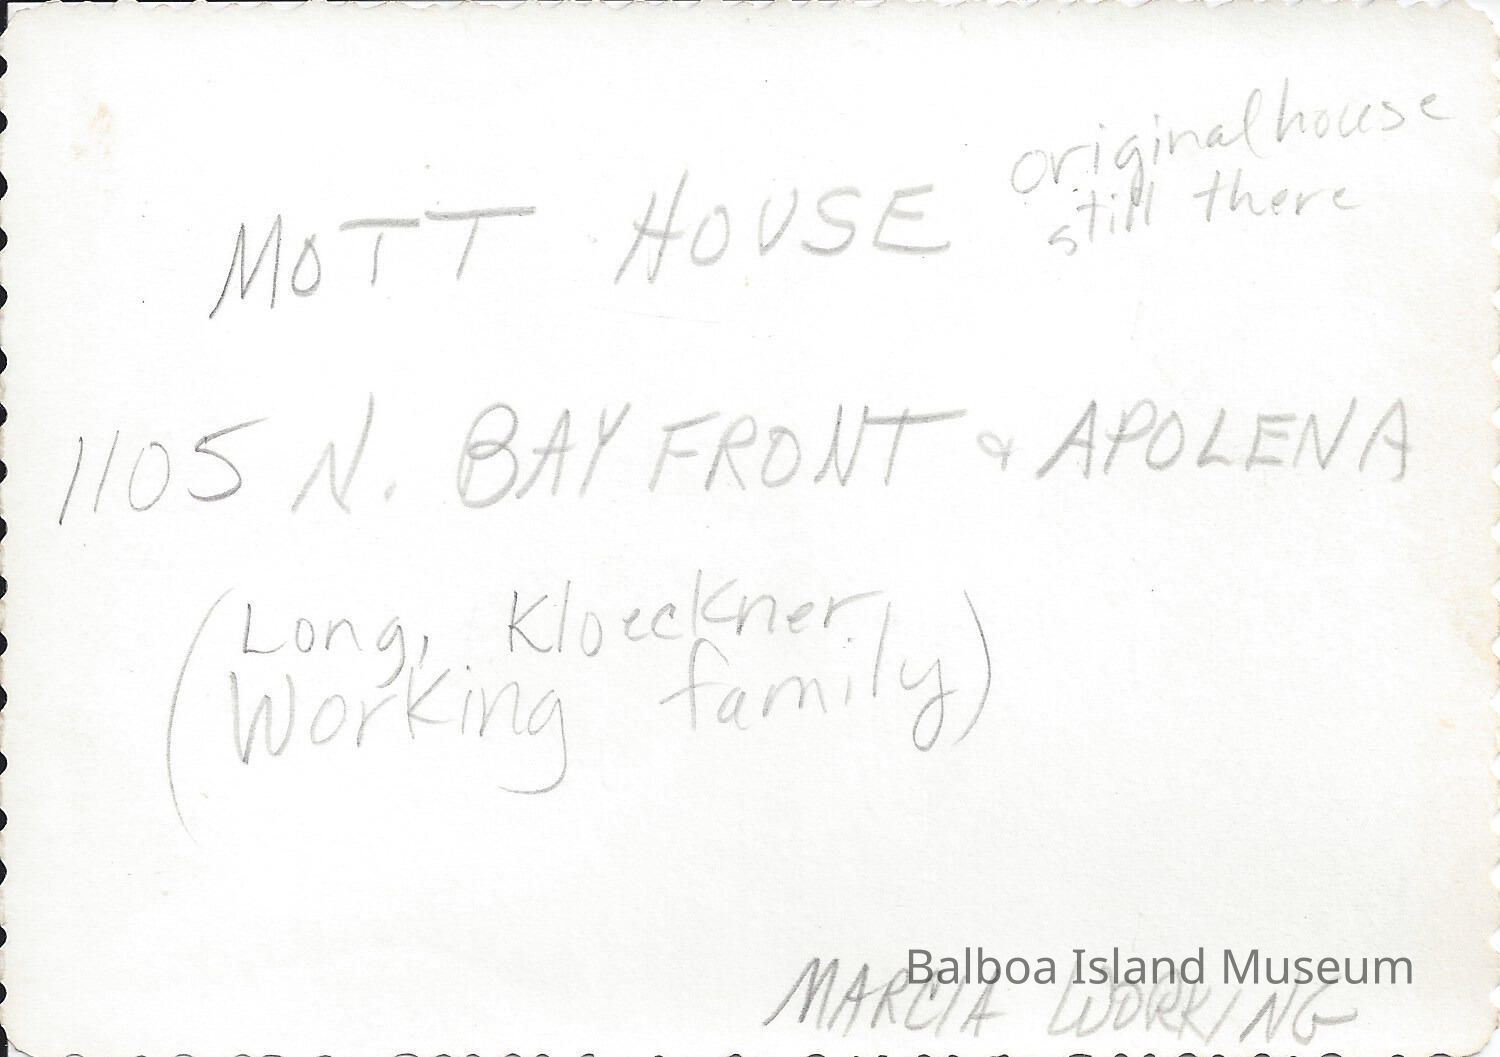 original house
still there
MOTT HOUSE
1105 N. BAY FRONT & APOLENA
(Long, Kloeckner,
Working family)
Balboa Island Museum
MARCIA WORKING